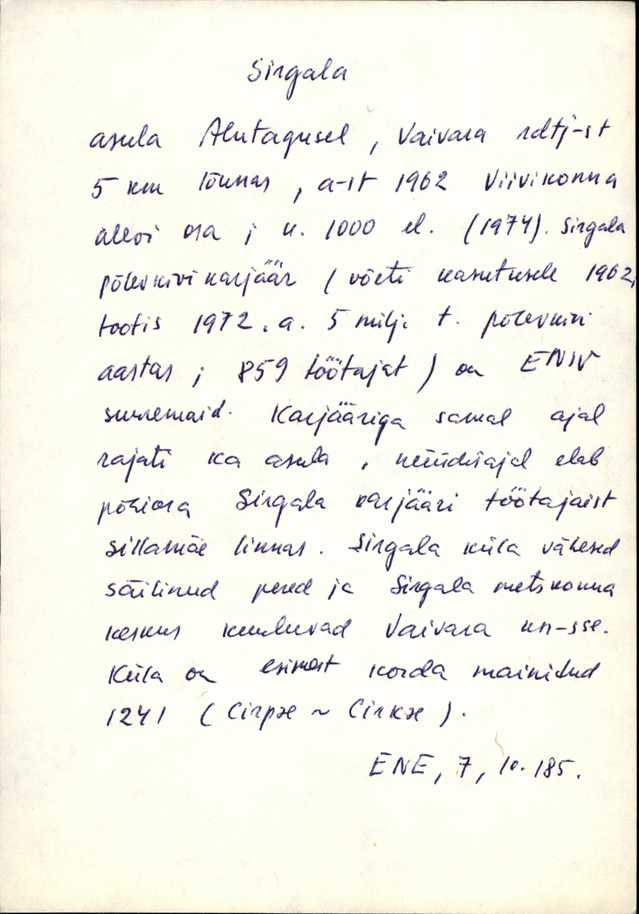 Sirgala
asula Alutagusel, Vaivara rdtj-st
5 km lõunas, a-st 1962 Viivikonna
alevi osa; u. 1000 el. (1974). Sirgala
põlevkivikarjäär (võeti kasutusele 1962,
tootis 1972. a. 5 milj. t. põlevkivi
aastas; 859 töötajat) on ENSV
suuremaid. Karjääriga samal ajal
rajati ka asula, nüüdisajal elab
põhiosa Sirgala karjääri töötajaist
Sillamäe linnas. Sirgala küla vähesed
säilinud pered ja Sirgala metskonna
keskus kuuluvad Vaivara kn-sse.
Küla on esimest korda mainitud
1241 (Cirpæ ~ Cirkæ).
ENE, 7, lk. 185.